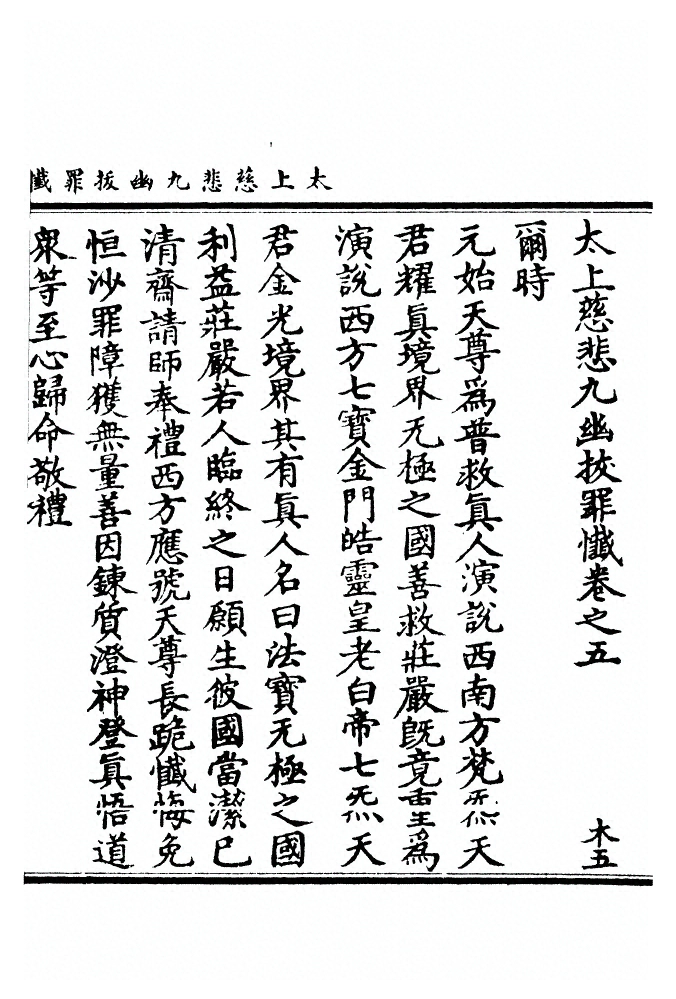 太上慈悲九幽拔罪懺
太上慈悲九幽拔罪懺卷之五　木五
爾時
元始天尊爲普救眞人演說西南方梵炁天
君耀眞境界无極之國善救莊嚴旣竟重爲
演說西方七寶金門皓靈皇老白帝七炁天
君金光境界其有眞人名曰法寶无極之國
利益莊嚴若人臨終之日願生彼國當潔巳
清齋請師奉禮西方應號天尊長跪懺悔免
恒沙罪障獲無量善因鍊質澄神登眞悟道
衆等至心歸命敬禮